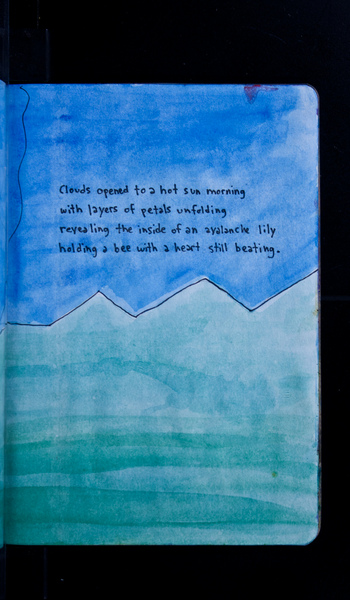 Clouds opened to a hot sun morning
with layers of petals unfolding
revealing the inside of an avalanche lily
holding a bee with a heart still beating.